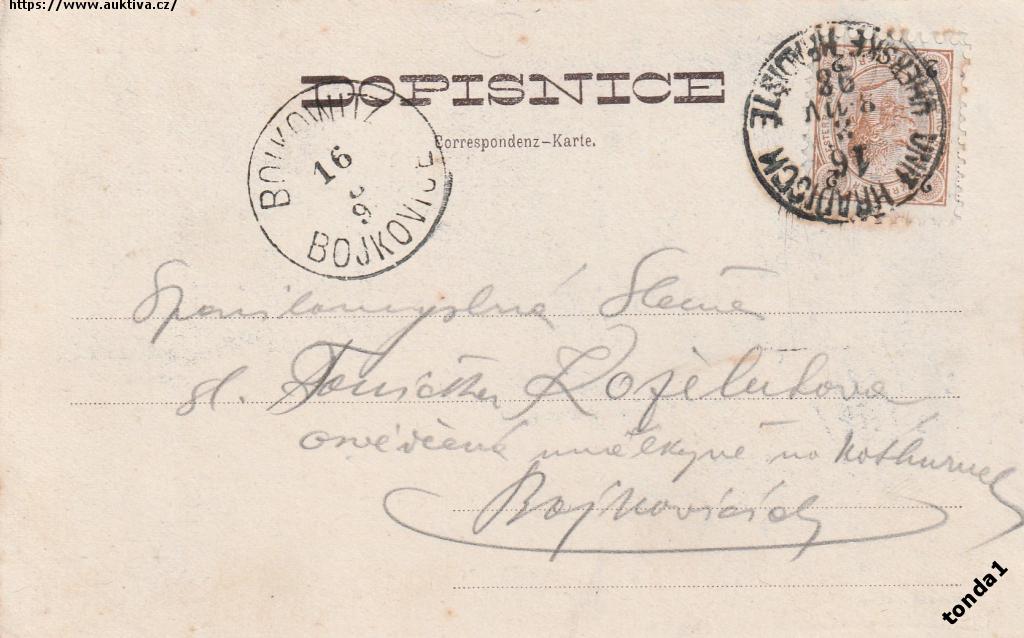 https://www.auktiva.cz/
DOPISNICE
Correspondenz-Karte.
BOJKOWITZ
16
9
BOJKOVICE
UNG. HRADISCH
UHERSKÉ HRADIŠTĚ
16
98
2
2
2
Slečna
sl. Tonička Koželuhova
osvědčená umělkyně na
Bojkovicích
tonda1